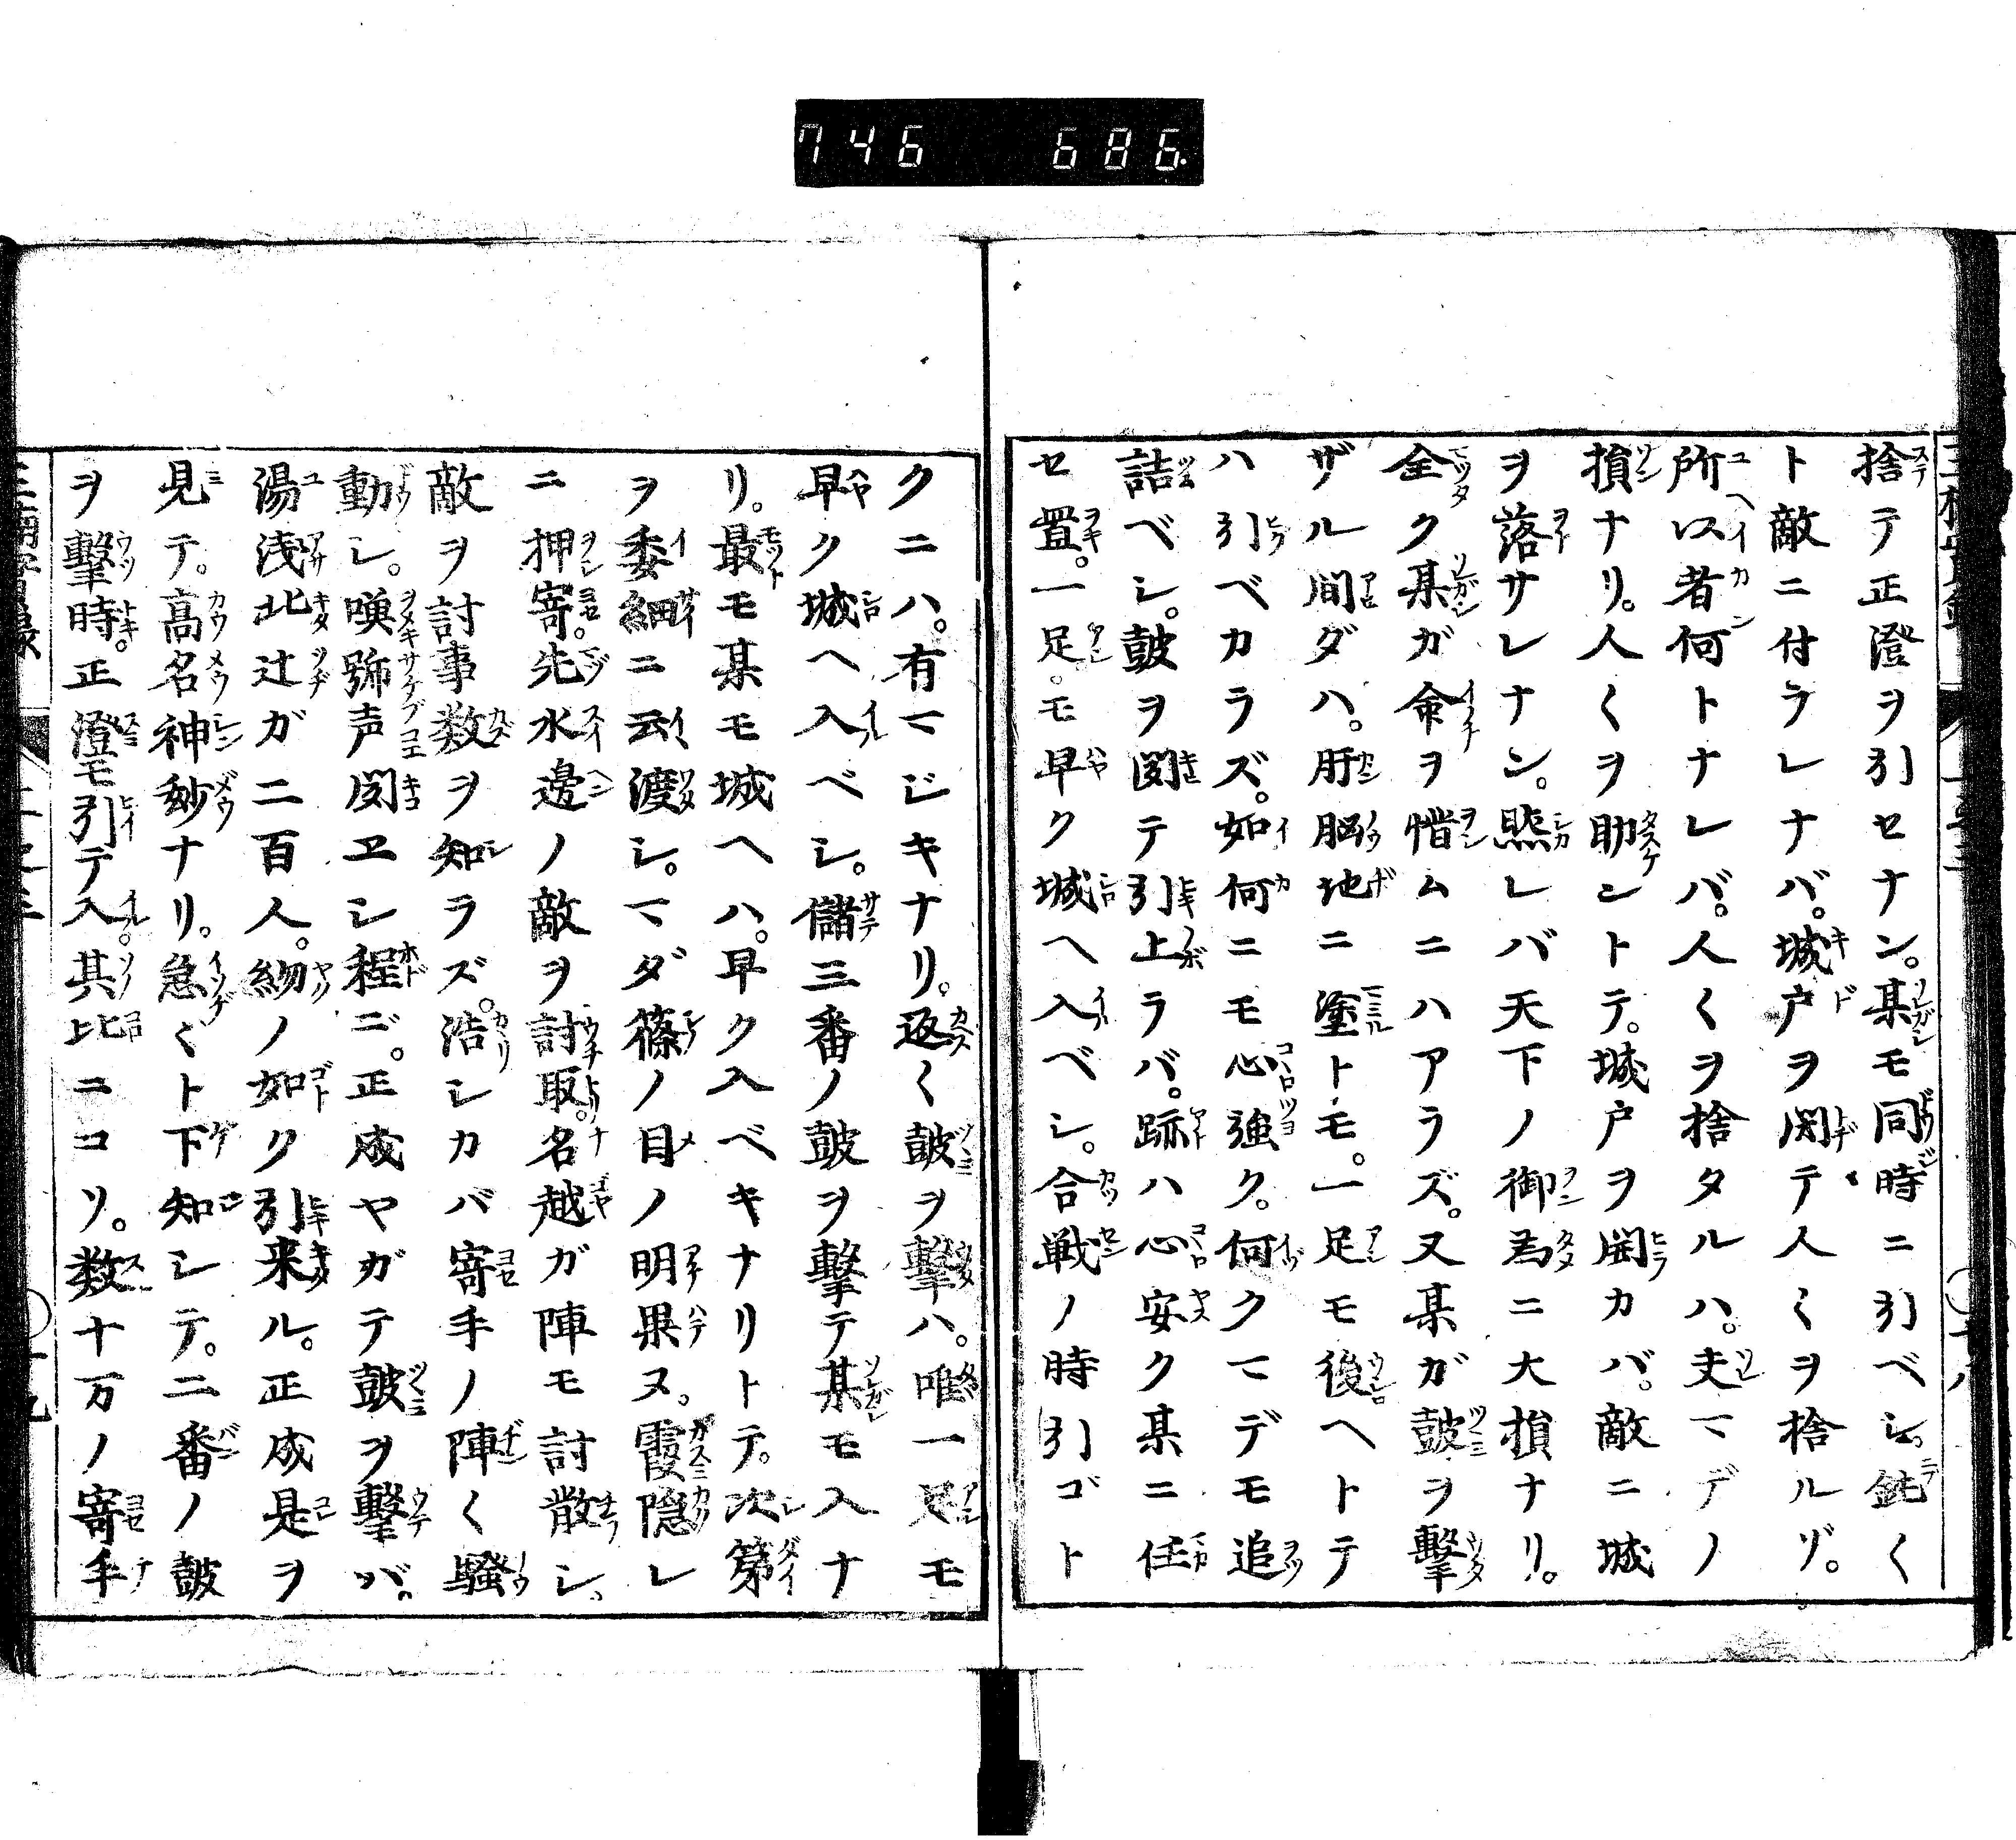 746 686.
捨テ正澄ヲ引セナン。某モ同時ニ引ベシ。鈍〱
ト敵ニ付ラレナバ。城戸ヲ閉テ人〻ヲ捨ルゾ。
所以者何トナレバ。人〱ヲ捨タルハ。夫マデノ
損ナリ。人〱ヲ助ントテ。城戸ヲ開カバ。敵ニ城
ヲ落サレナン。然レバ天下ノ御為ニ大損ナリ。
全ク某ガ命ヲ惜ムニハアラズ。又某ガ皷ヲ撃
ザル間ダハ。肝脳地ニ塗トモ。一足モ後ヘトテ
ハ引ベカラズ。如何ニモ心強ク。何クマデモ追
詰ベシ。皷ヲ聞テ引上ラバ。跡ハ心安ク某ニ任
セ置。一足モ早ク城ヘ入ベシ。合戦ノ時引ゴト
クニハ。有マジキナリ。返〱皷ヲ撃ハ。唯一足モ
早ク城ヘ入ベシ。儲三番ノ皷ヲ撃テ某モ入ナ
リ。最モ某モ城ヘハ。早ク入ベキナリトテ。次第
ヲ委細ニ云渡シ。マダ篠ノ目ノ明果ヌ。霞隠レ
ニ押寄。先水邊ノ敵ヲ討取。名越ガ陣モ討散シ。
敵ヲ討事数ヲ知ラズ。浩シカバ寄手ノ陣〱騒
動シ。喚號声聞ヱシ程ニ。正成ヤガテ皷ヲ撃バ。
湯浅北辻ガ二百人。約ノ如ク引来ル。正成是ヲ
見テ。高名神妙ナリ。急〱ト下知シテ。二番ノ皷
ヲ撃時。正澄モ引テ入。其比ニコソ。数十万ノ寄手